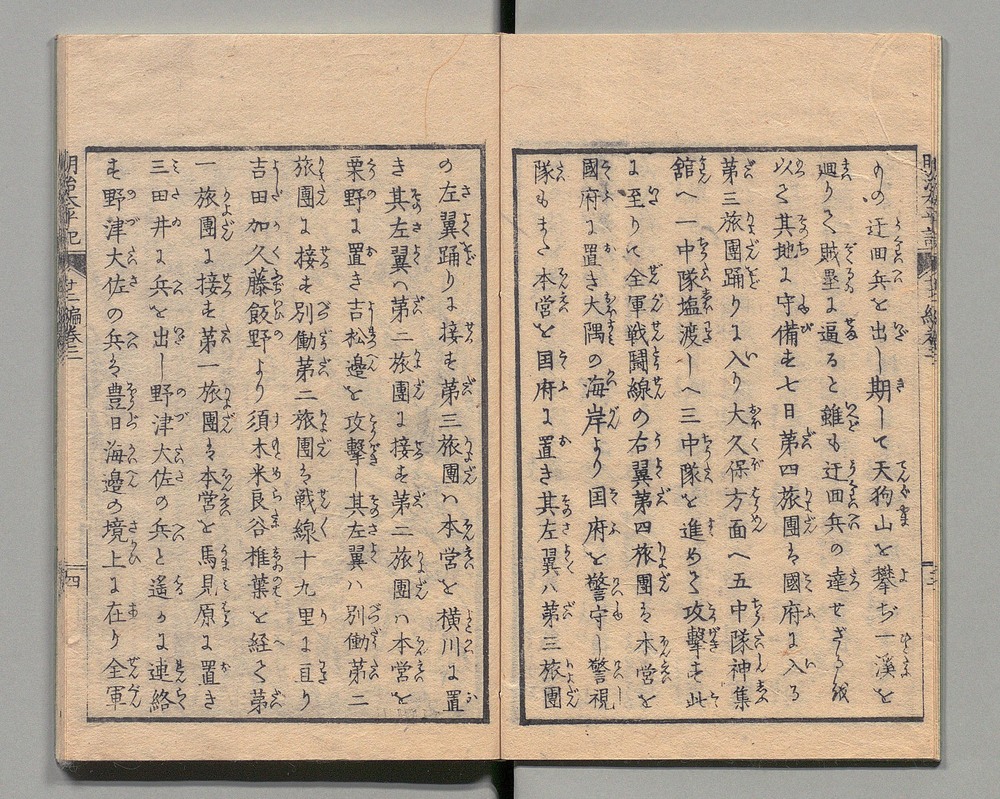 りの迂回兵を出し期して天狗山を攀ぢ一溪を
廻りて賊塁に逼ると雖も迂回兵の達せざる故
以て其地に守備す七日第四旅團は國府に入る
第三旅團踊りに入り大久保方面へ五中隊神集
舘へ一中隊塩渡しへ三中隊を進めて攻撃す此
に至りて全軍戦闘線の右翼第四旅團は本営を
國府に置き大隅の海岸より国府を警守し警視
隊もまた本営を国府に置き其左翼ハ第三旅團
の左翼踊りに接す第三旅團ハ本営を横川に置
き其左翼へ第二旅團に接す第二旅團ハ本営を
栗野に置き吉松邊を攻撃し其左翼ハ別働第二
旅團に接す別働第二旅團は戦線十九里に亘り
吉田加久藤飯野より須木米良谷椎葉を経て第
一旅團に接す第一旅團は本営を馬見原に置き
三田井に兵を出し野津大佐の兵と遙かに連絡
す野津大佐の兵は豊日海邊の境上に在り全軍
明治太平記
廿二編巻三
四